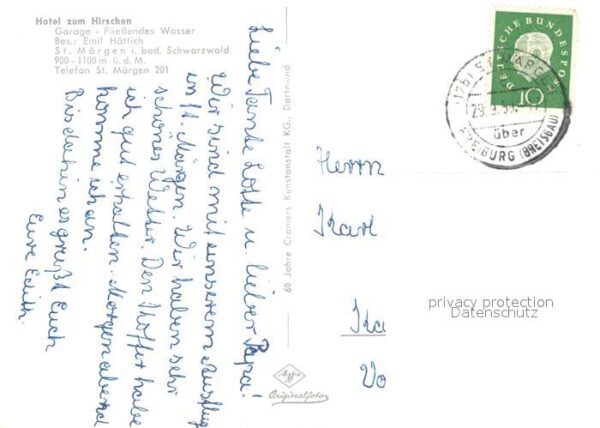 Hotel zum Hirschen
Garage - Fließendes Wasser
Bes.: Emil Hättich
St. Märgen i. bad. Schwarzwald
900 - 1100 m ü. d. M.
Telefon St. Märgen 201
Liebe Tante Lotte u. lieber Papa!
Wir sind mit unserem Ausflug
in St. Märgen. Wir haben sehr
schönes Wetter. Den Koffer habe
ich gut erhalten. Morgen abend
komme ich an.
Bis dahin es grüßt Euch
Eure Edith.
60 Jahre Cramers Kunstanstalt KG., Dortmund
Agfa
Originalfoto
DEUTSCHE BUNDESPOST
10
(17b) ST. MÄRGEN
über
FREIBURG (BREISGAU)
Herrn
Karl
Ka
Vo
privacy protection
Datenschutz